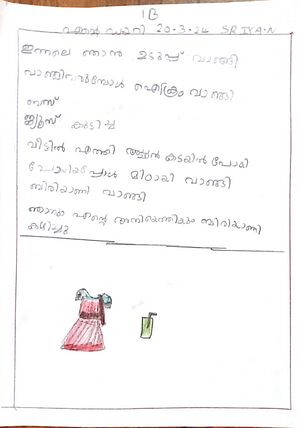 1B
എന്റെ ഡയറി 20-3-24 SRIYA.N
ഇന്നലെ ഞാൻ ഉടുപ്പ് വാങ്ങി
ഐസ്ക്രീം വാങ്ങി
ബസ്
ജ്യൂസ് കുടിച്ചു
വീട്ടിൽ എത്തി അച്ഛൻ കടയിൽ പോയി
മിഠായി വാങ്ങി
ബിരിയാണി വാങ്ങി
ഞാനും എന്റെ അനിയത്തിയും ബിരിയാണി
കഴിച്ചു